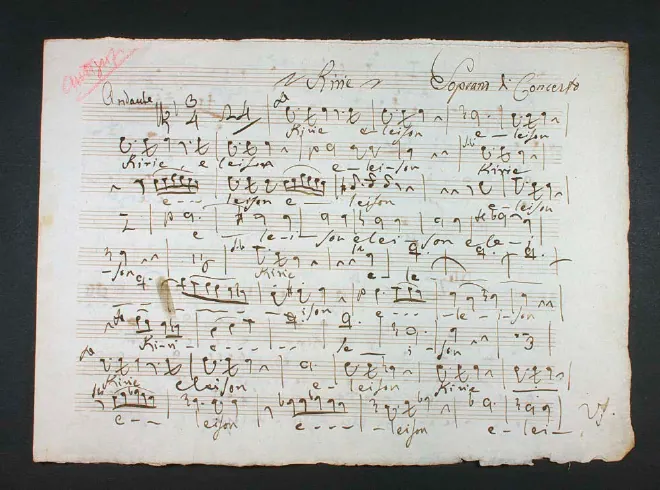 Kirie Soprani di Concerto
Andante 3/4 24
Kirie eleison e-leison
Kirie eleison e-lei-son Kirie
e--- leison e- leison e-leison
e-le-i-son elei-son e-le-i
-son Kirie e-le
ison -le-i-son
Ki-ri-e--- le-i-son 3
Kirie eleison e-leison Kirie
e--- leison e--- leison e-lei-